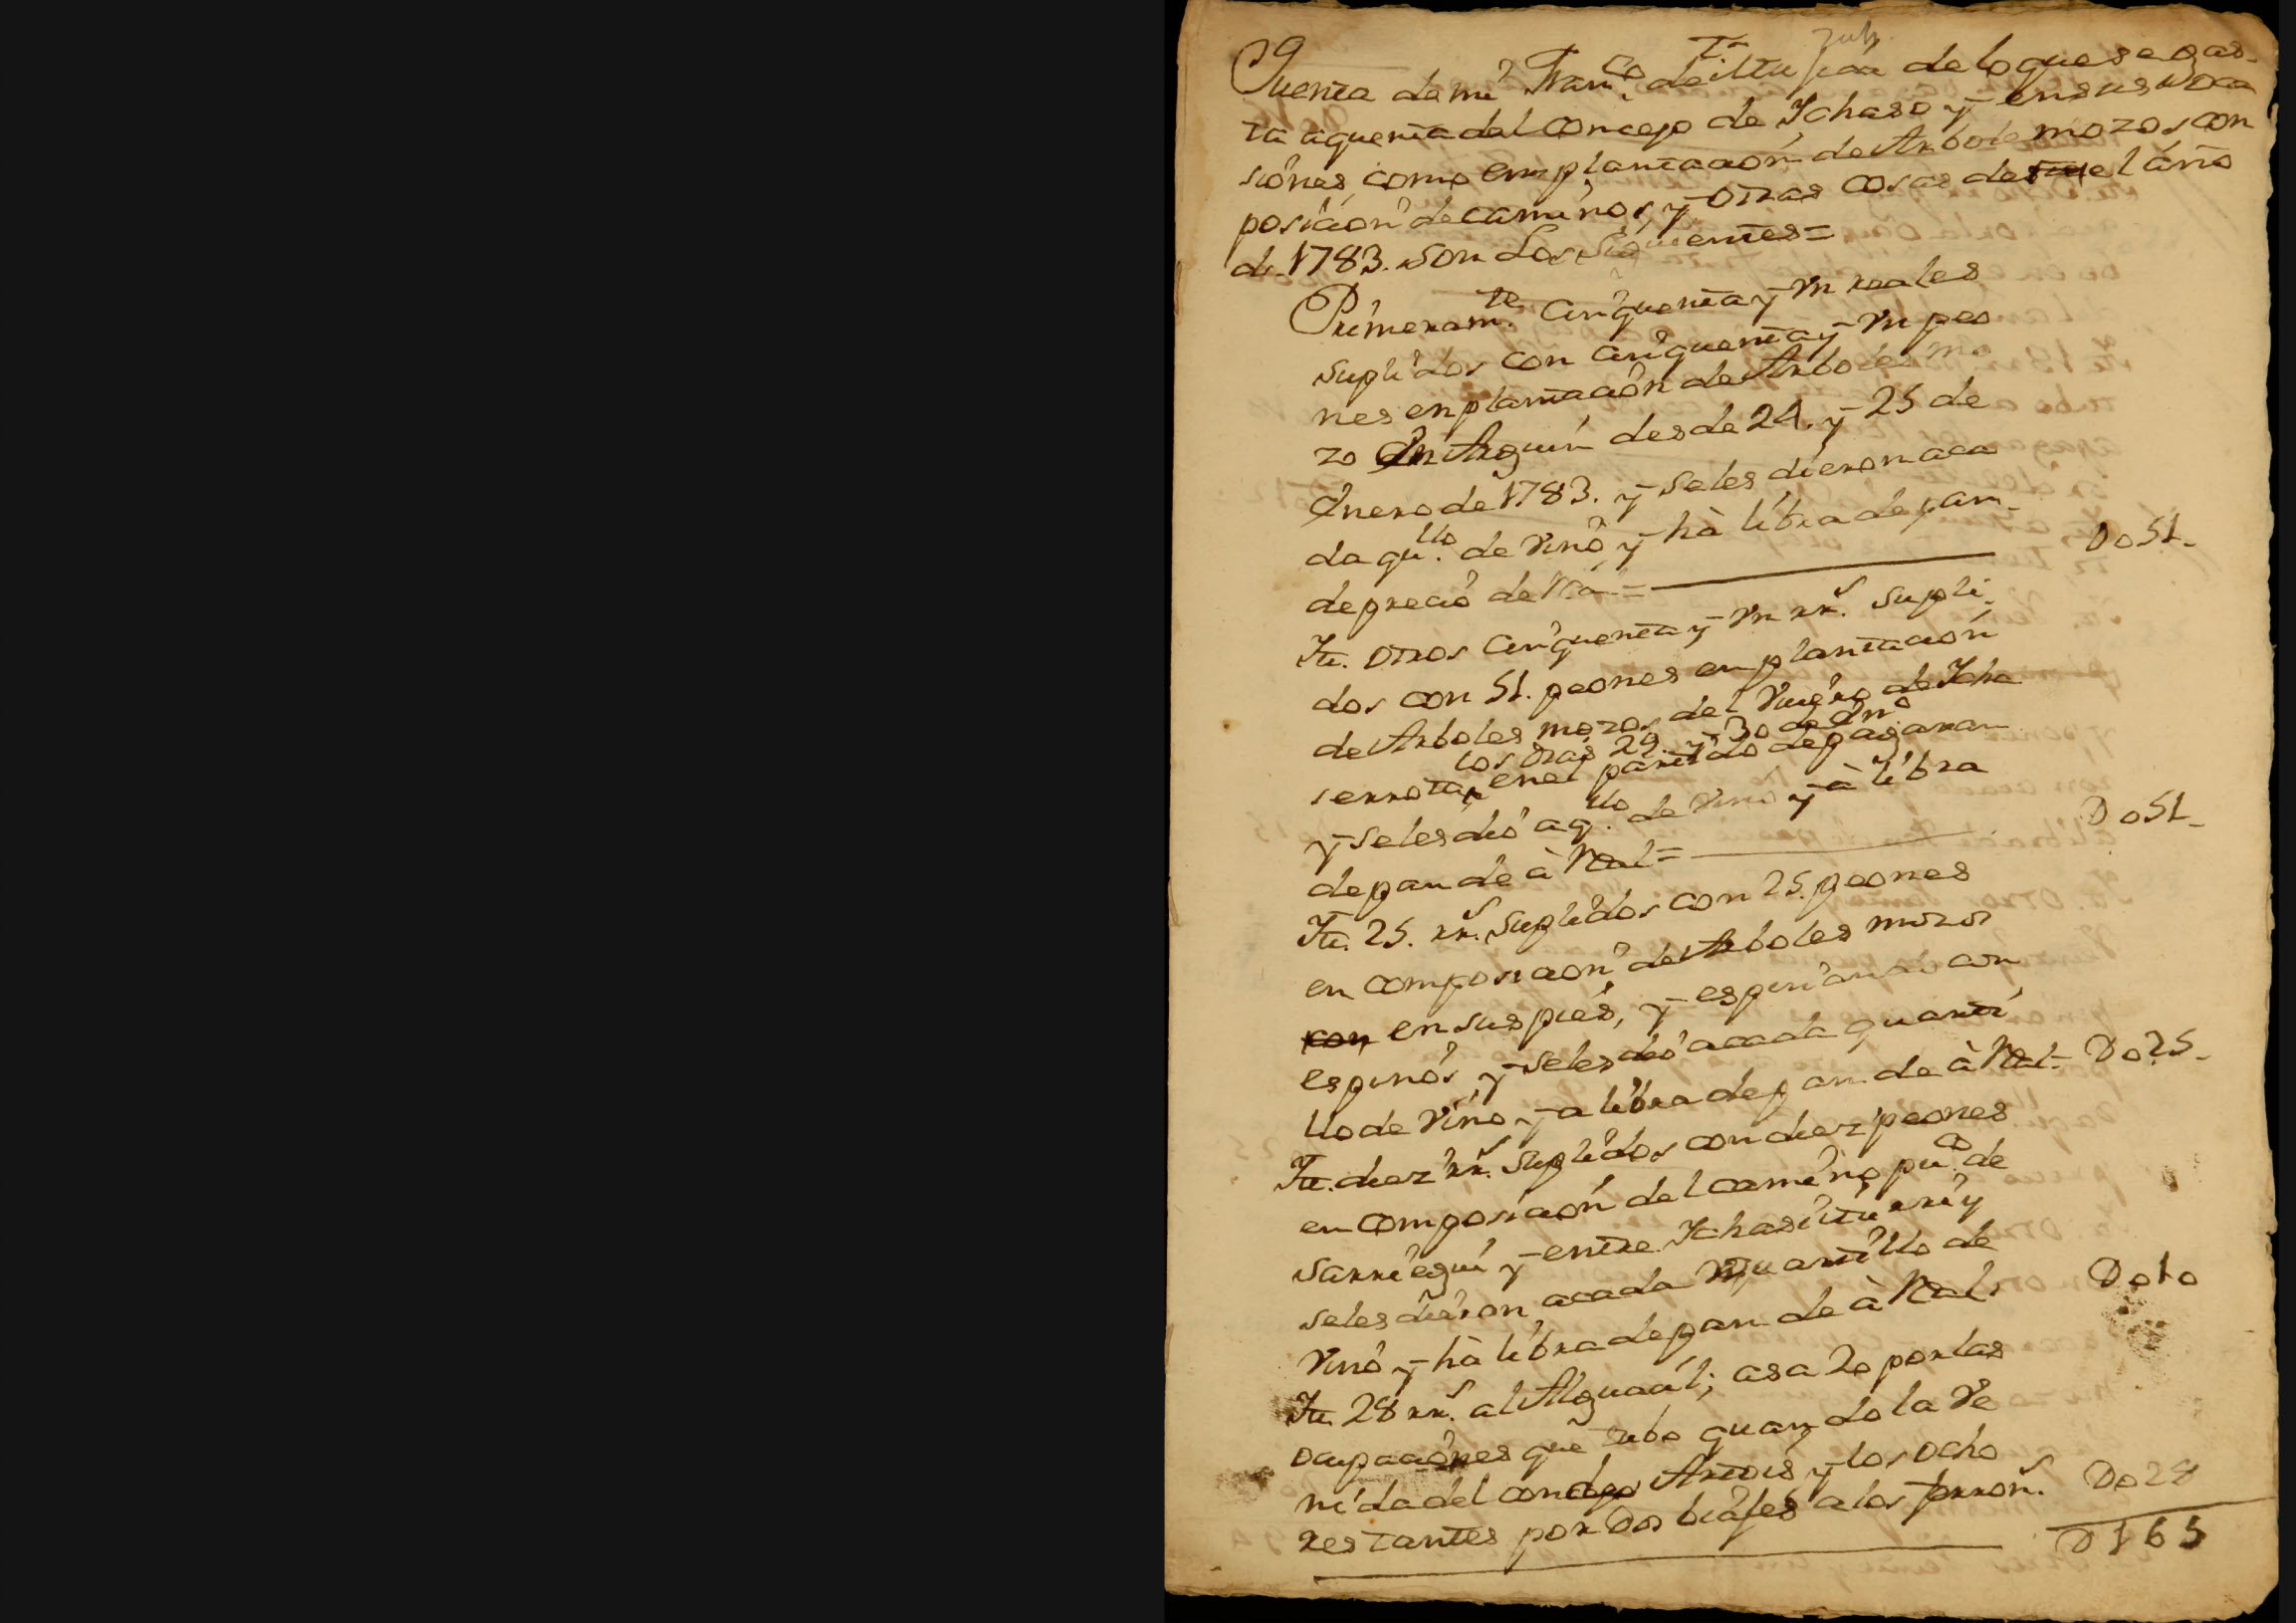 Quenta de mi Fran.co de Itu de lo que se gas-
ta aquenta del Concejo de Ichaso y en sus oca
siones, como en plantación de Arboles mozos con
posición de caminos, y otras cosas desde el año
de 1783. son Los Siguientes=
Primeram.te Cinquenta y Vn reales
suplidos con cinquenta y Vn peo
nes en plantación de Arboles mo
zo En Arguin desde 24. y 25 de
Enero de 1783. y Seles dieron aca
da qu.llo de Vino y hà libra de pan.
de preció de Rà= Do51-
Itt. otros Cinquenta y Vn rr.s supli-
dos con 51. peones en plantación
de Arboles mozos del Vivero de Icha
serrota, en el partido de pagarran
los dias 29. y 30 de En.o
y seles dió aq.llo de Vino y à libra
de pan de à Real= Do51-
Itt. 25. rr.s Suplidos con 25. peones
en composición de Arboles mozos
con en sus pies, y espinando con
espinós, y seles dió acada quarti
llo de Vino, y a libra de pan de à Real- Do25-
Itt. diez rr.s Suplidos con diez peones
en composición del camino pu.co de
Sarriegui y entre Ichasiturri y
seles dieron acada quartillo de
Vinó y hà libra de pan de à Real. Do10
Itt. 28 rr.s al Alguacil; asa 20 por las
ocupaciónes que tubo quando la Ve
nida del conde Artois y los ocho
restantes por Dos biajes a los Do28
D165